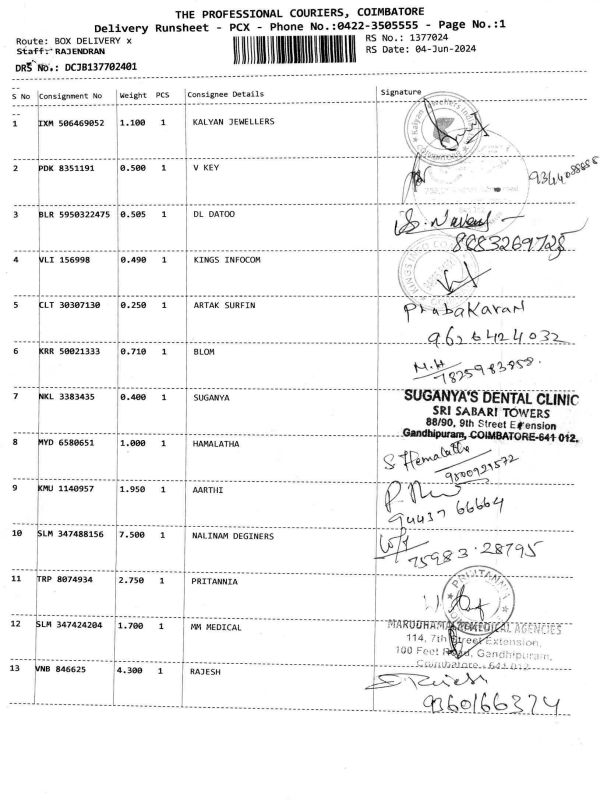 THE PROFESSIONAL COURIERS, COIMBATORE
Delivery Runsheet - PCX - Phone No.:0422-3505555 - Page No.:1
Route: BOX DELIVERY x
RS No.: 1377024
Staff: RAJENDRAN
RS Date: 04-Jun-2024
DRS No.: DCJB137702401
S No Consignment No Weight PCS Consignee Details Signature
1 IXM 506469052 1.100 1 KALYAN JEWELLERS
2 PDK 8351191 0.500 1 V KEY
3 BLR 5950322475 0.505 1 DL DATOO
8883269725
4 VLI 156998 0.490 1 KINGS INFOCOM
5 CLT 30307130 0.250 1 ARTAK SURFIN Prabakaran
9626424032
6 KRR 50021333 0.710 1 BLOM M.H
7825983858.
7 NKL 3383435 0.400 1 SUGANYA SUGANYA'S DENTAL CLINIC
SRI SABARI TOWERS
88/90, 9th Street Extension
Gandhipuram, COIMBATORE-641 012.
8 MYD 6580651 1.000 1 HAMALATHA S Hemalatha
9 KMU 1140957 1.950 1 AARTHI
94437 66664
10 SLM 347488156 7.500 1 NALINAM DEGINERS
75983 28795
11 TRP 8074934 2.750 1 PRITANNIA
PRITANNIA
12 SLM 347424204 1.700 1 MM MEDICAL
MEDICAL AGENCIES
114, 7th Street Extension,
100 Feet Road, Gandhipuram,
Coimbatore - 641 012
13 VNB 846625 4.300 1 RAJESH
9360166374